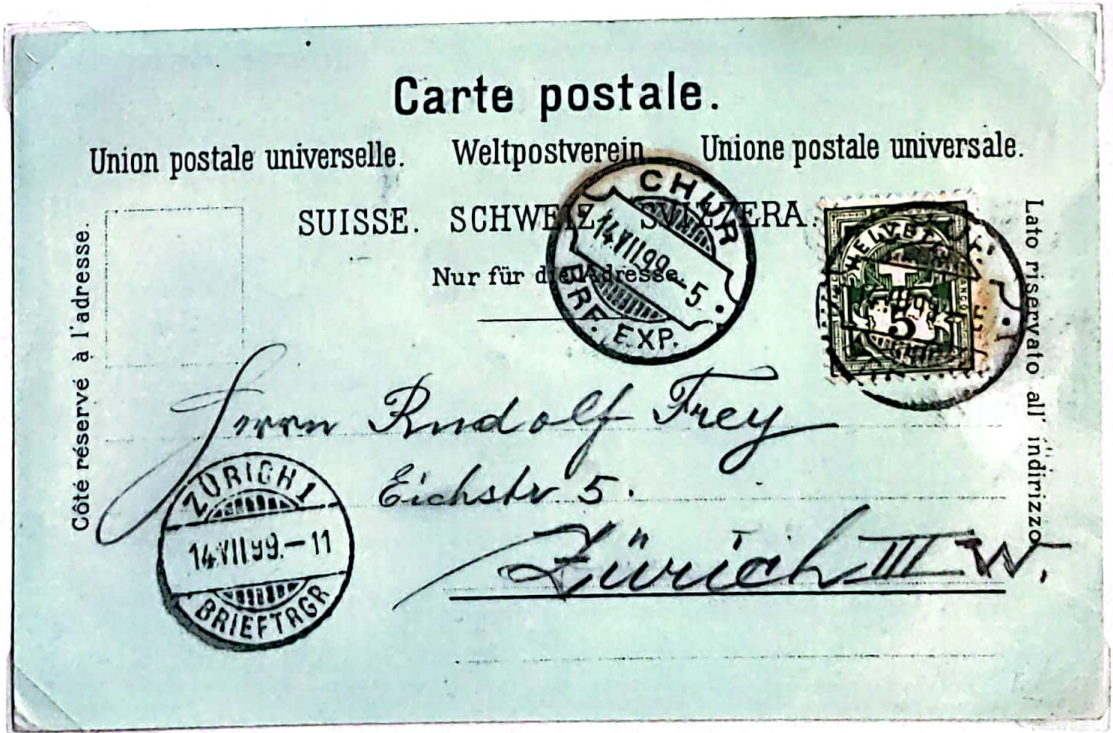 Carte postale.
Union postale universelle. Weltpostverein Unione postale universale.
SUISSE. SCHWEIZ. SVIZZERA.
Nur für die Adresse.
Côté réservé à l'adresse.
Lato riservato all' indirizzo
CHUR
14.VII.99.–5
BRF. EXP.
HELVETIA
5
Herrn Rudolf Frey
Eichstr 5.
Zürich III W.
ZÜRICH 1
14.VII.99.–11
BRIEFTRGR